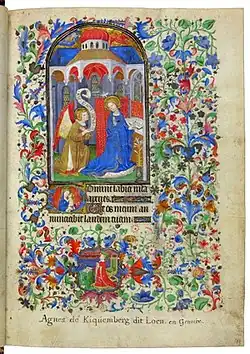 Domine labia mea
aperies.
Et os meum an
nunciabit laudem tuam.
Agnes de Kiquemberg dit Loen. en Gramire.